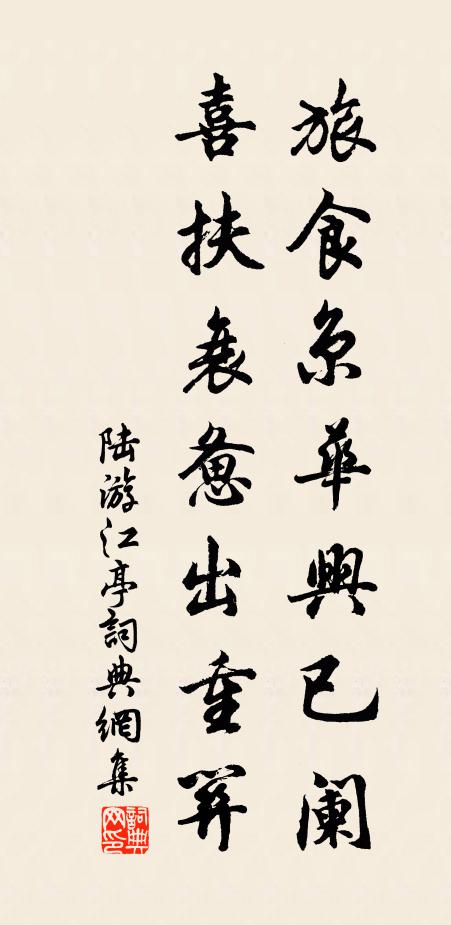 旅食京華興已闌
喜扶衰憊出重關
陸游江亭詞典網集
詞典
网印